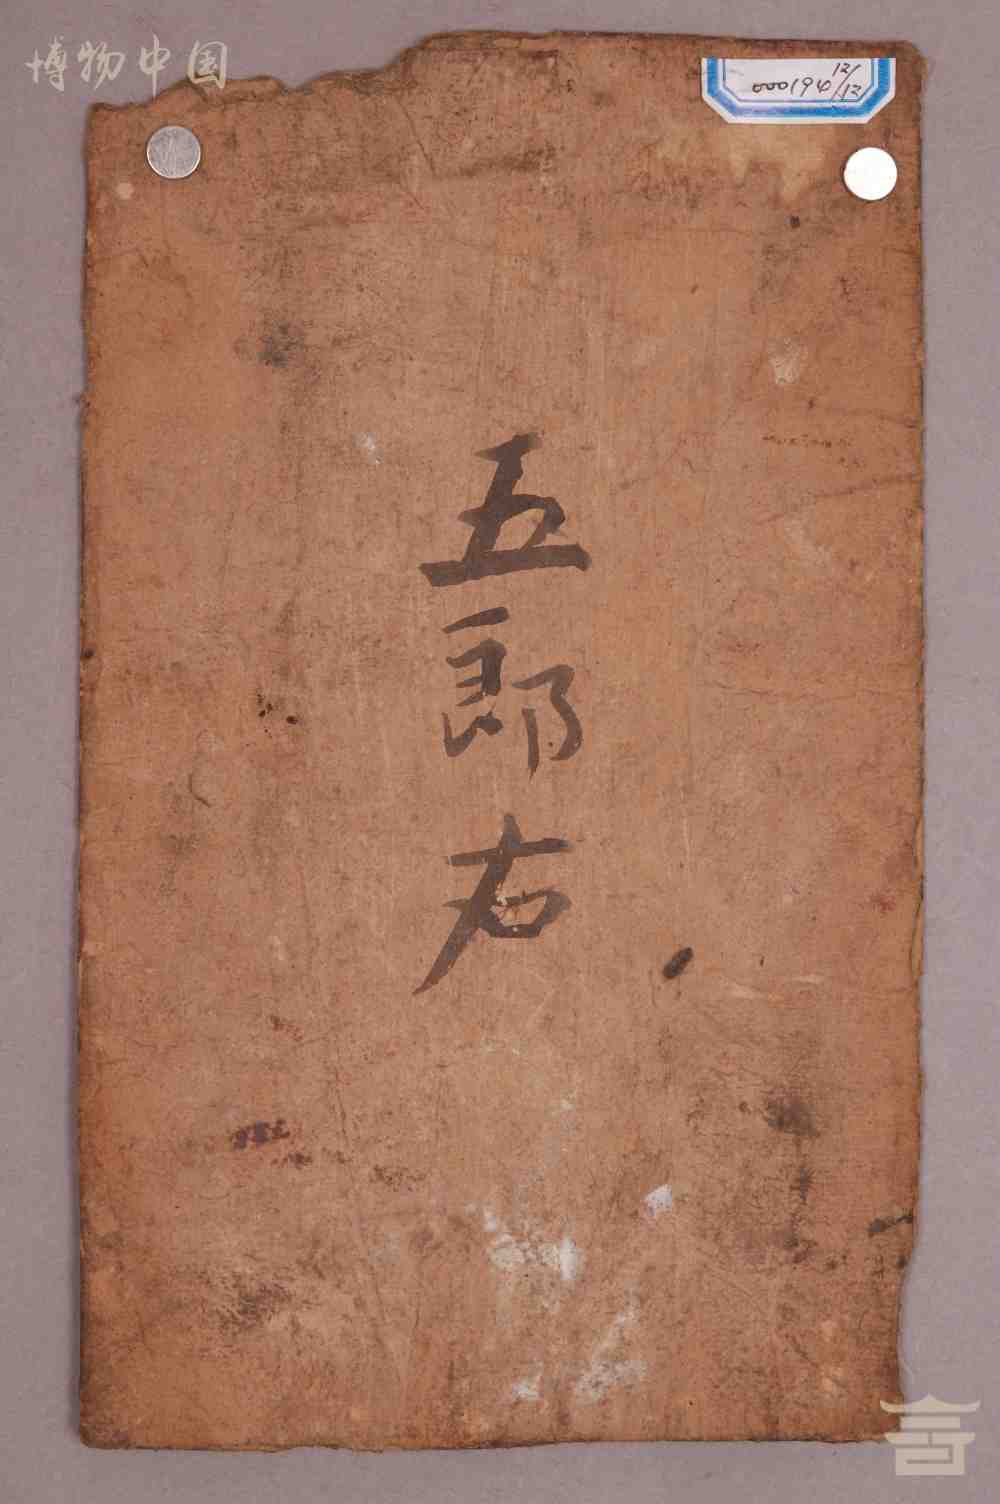 博物中国
000194 12/12
五郎右